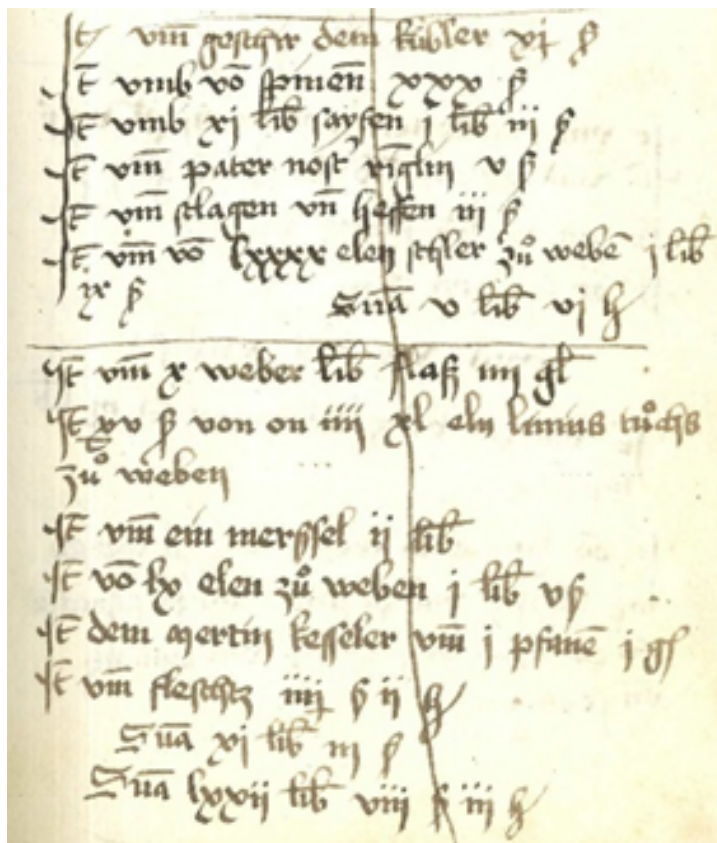 It vm̄ geschir dem kübler xj ß
It vmb vō spinen̄ xxx ß
It vmb xj lib sayfen j lib iij ß
It vm̄ pater nost ringlin v ß
It vm̄ slagen vn̄ heffen iij ß
It vm̄ vō lxxxx elen zů webē j lib
ix ß Sūa v lib vj h
It vm̄ x weber lib flaß iiij gl
It xv ß von on iiij xl eln linins tůchs
zů weben
It vm̄ ein ij lib
It vō lx elen zů weben j lib v ß
It dem mertin kesseler vm̄ j pfanē j gl
It vm̄ fleschtz iiij ß ij h
Sūa xj lib iij ß
Sūa lxxij lib viij ß iij h